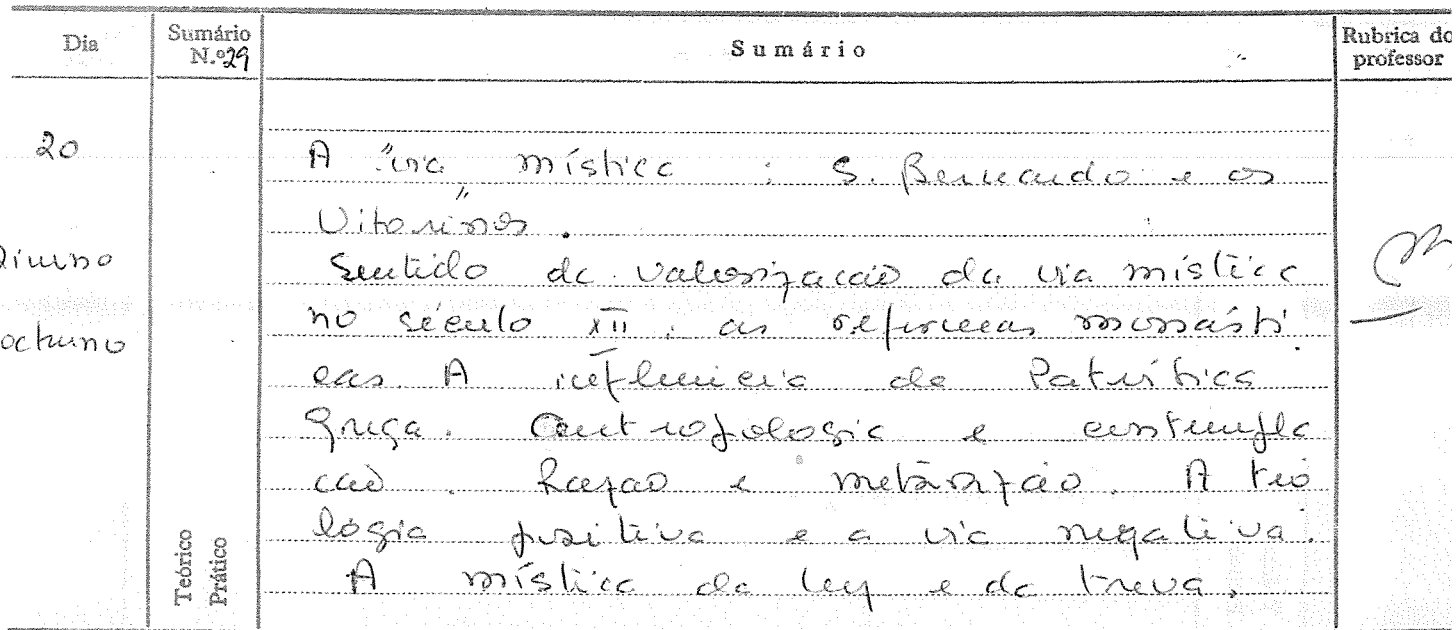 Dia
Sumário N.º 29
Sumário
Rubrica do professor
20
Diurno
octurno
Teórico
Prático
A "via mística" : S. Bernardo e os
Vitorinos.
Sentido da valorização da via mística
no século XII : as reformas monásti
cas. A influência da Patrística
Grega. Antropologia e contempla
ção. Razão e metarazão. A teo
logia positiva e a via negativa.
A mística da luz e da treva.